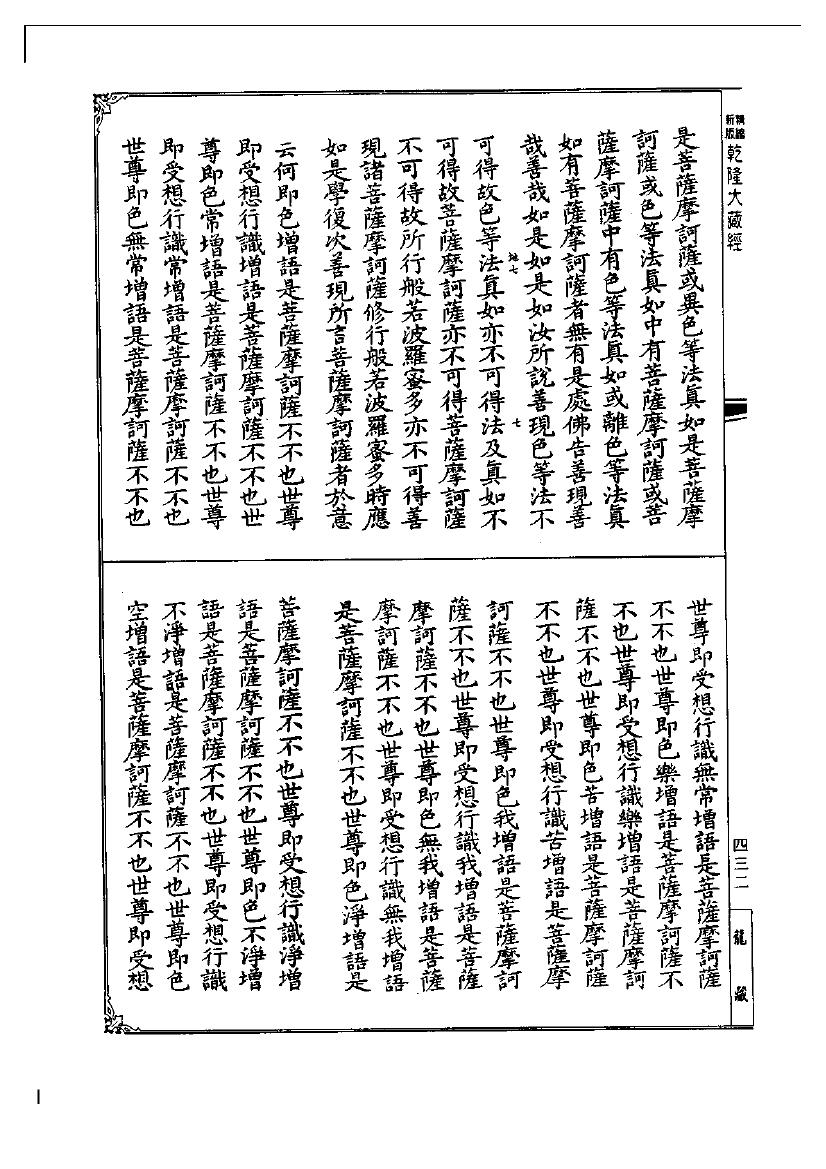 新版精縮
乾隆大藏經
是菩薩摩訶薩或異色等法真如是菩薩摩
訶薩或色等法真如中有菩薩摩訶薩或菩
薩摩訶薩中有色等法真如或離色等法真
如有菩薩摩訶薩者無有是處佛告善現善
哉善哉如是如是如汝所說善現色等法不
可得故色等法真如亦不可得法及真如不
可得故菩薩摩訶薩亦不可得菩薩摩訶薩
不可得故所行般若波羅蜜多亦不可得善
現諸菩薩摩訶薩修行般若波羅蜜多時應
如是學復次善現所言菩薩摩訶薩者於意
云何即色增語是菩薩摩訶薩不不也世尊
即受想行識增語是菩薩摩訶薩不不也世
尊即色常增語是菩薩摩訶薩不不也世尊
即受想行識常增語是菩薩摩訶薩不不也
世尊即色無常增語是菩薩摩訶薩不不也
世尊即受想行識無常增語是菩薩摩訶薩
不不也世尊即色樂增語是菩薩摩訶薩不
不也世尊即受想行識樂增語是菩薩摩訶
薩不不也世尊即色苦增語是菩薩摩訶薩
不不也世尊即受想行識苦增語是菩薩摩
訶薩不不也世尊即色我增語是菩薩摩訶
薩不不也世尊即受想行識我增語是菩薩
摩訶薩不不也世尊即色無我增語是菩薩
摩訶薩不不也世尊即受想行識無我增語
是菩薩摩訶薩不不也世尊即色淨增語是
菩薩摩訶薩不不也世尊即受想行識淨增
語是菩薩摩訶薩不不也世尊即色不淨增
語是菩薩摩訶薩不不也世尊即受想行識
不淨增語是菩薩摩訶薩不不也世尊即色
空增語是菩薩摩訶薩不不也世尊即受想
四三二
龍藏